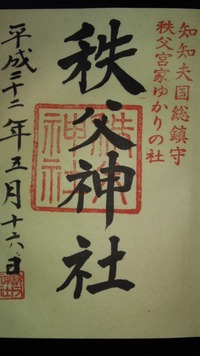 知知夫国総鎮守
秩父宮家ゆかりの社
秩父神社
秩父
神社
平成二十二年五月十六日